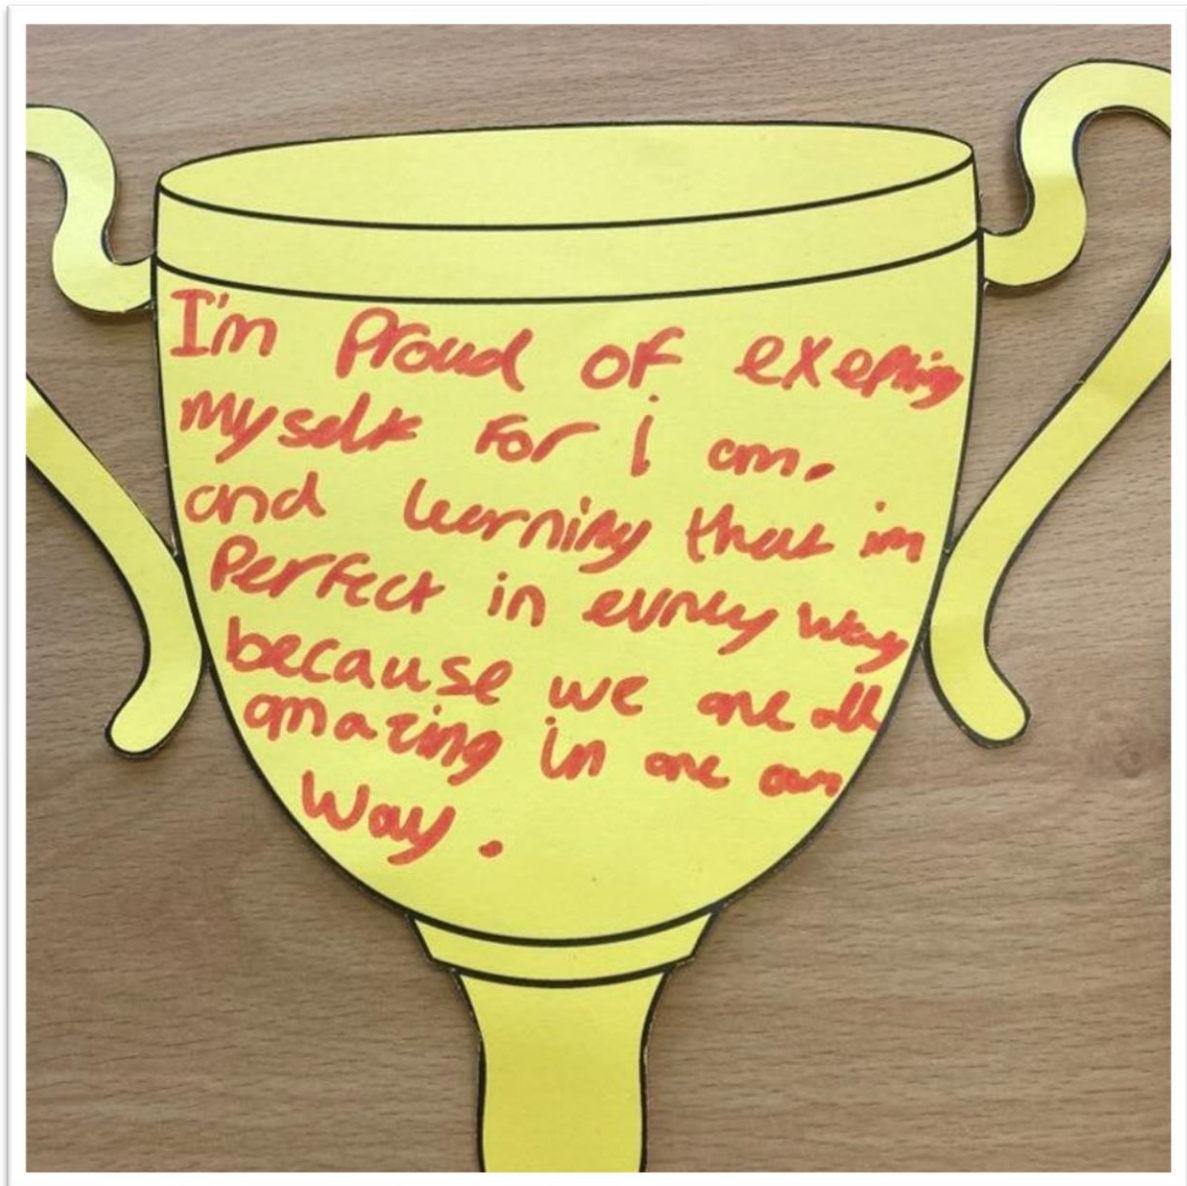 I'm Proud of exepting
myself for i am.
and learning that im
Perfect in evrey way
because we are all
amazing in are own
Way.